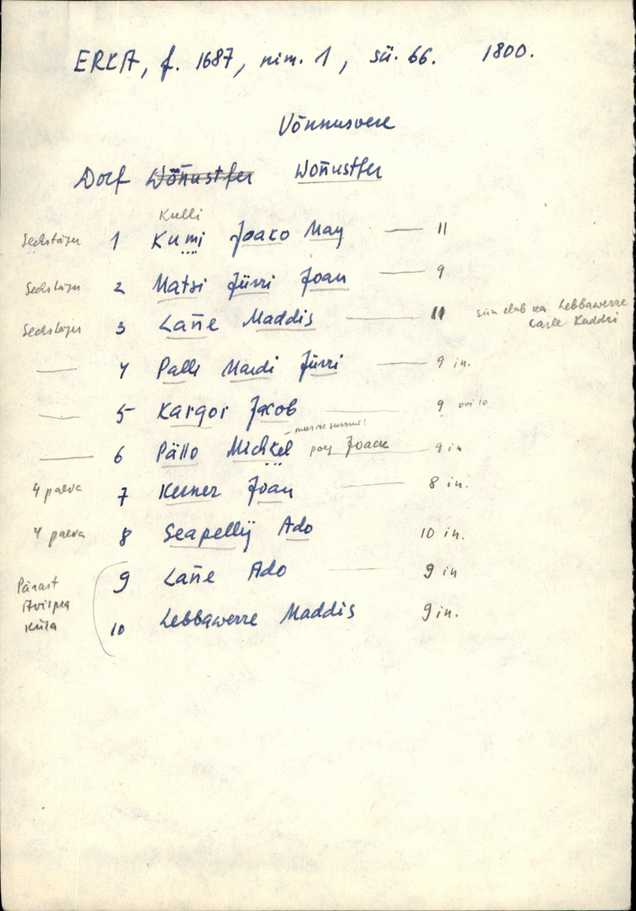 ERKA, f. 1687, nim. 1, sü. 66. 1800.
Võnnusvere
Dorf Woñustfer Woñustfer
Kulli
Sechstäger 1 Kumi Joaco May — 11
Sechstäger 2 Matsi Jürri Joan — 9
Sechstäger 3 Lañe Maddis — 11 siin elab ka Lebbawerre
Kaddri
— 4 Palli Mardi Jürri — 9 in.
— 5 Kargor Jacob — 9
— 6 Pällo Michkel Joack — 9 in
4 päeva 7 Kerner Joan — 8 in.
4 päeva 8 Seapellij Ado 10 in.
Pärast 9 Lañe Ado — 9 in
küla 10 Lebbawerre Maddis 9 in.